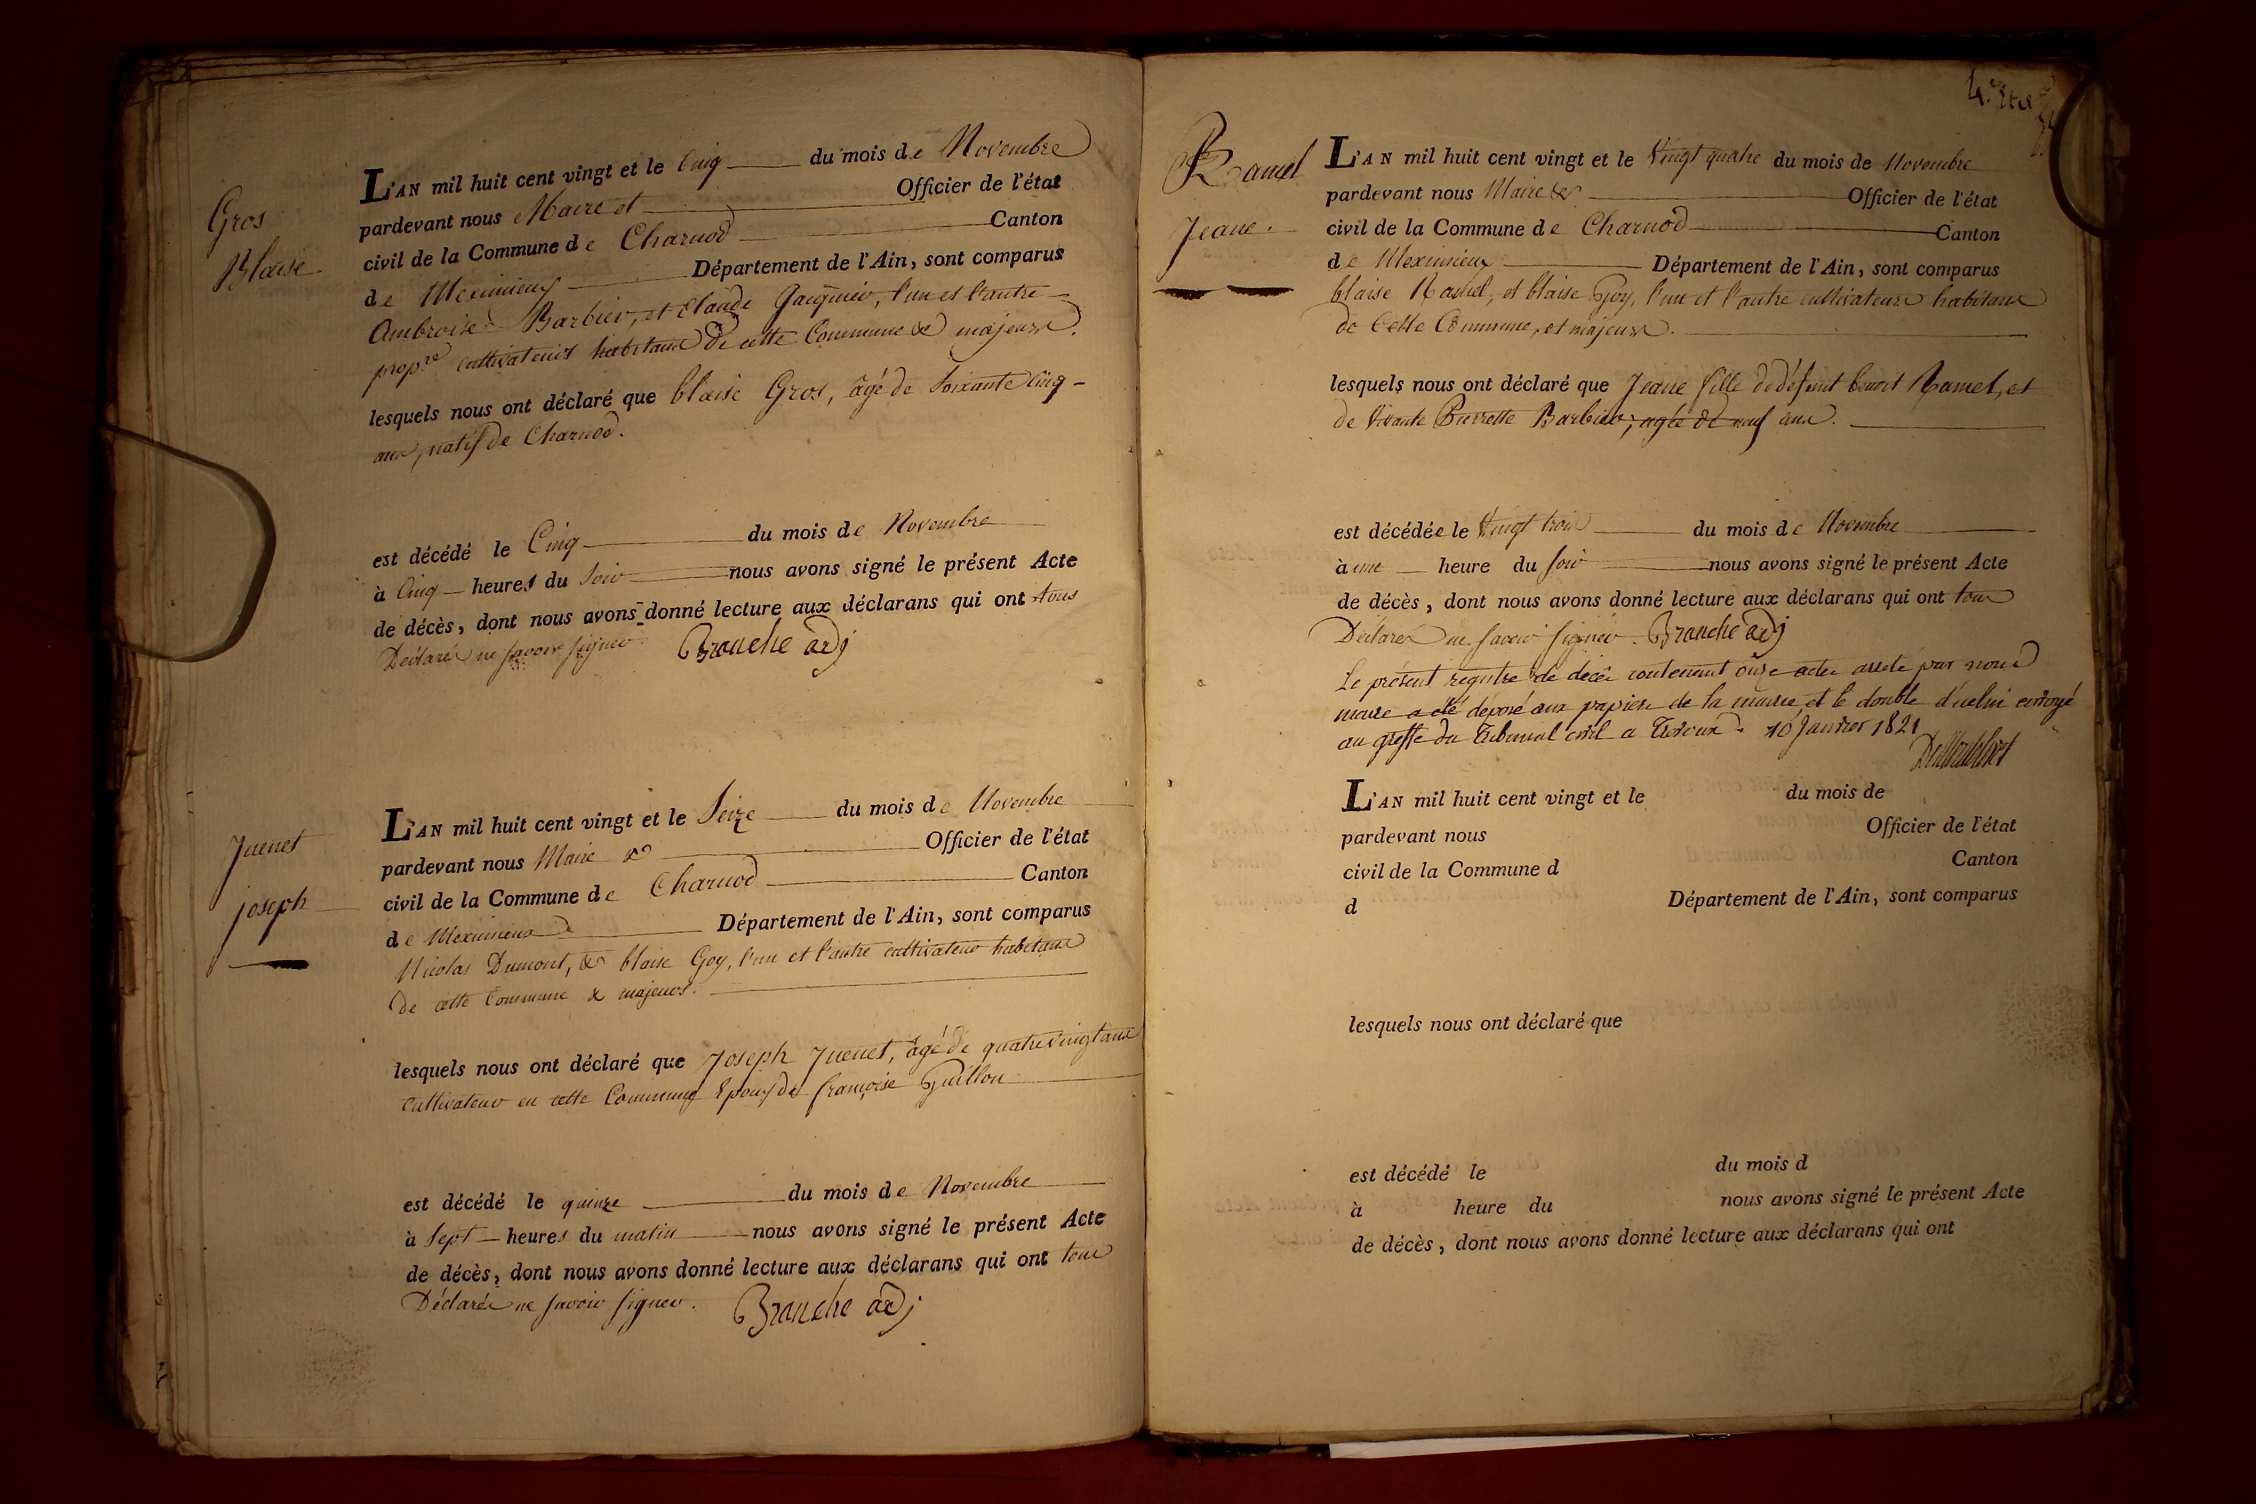 Gros
Blaise
L'AN mil huit cent vingt et le Cinq du mois de Novembre
pardevant nous Maire et Officier de l'état
civil de la Commune de Charnod Canton
de Meximieux Département de l'Ain, sont comparus
Ambroise Barbier, et Claude Jacquier, l'un et l'autre
prop.re cultivateurs habitans de cette Commune & majeurs.
lesquels nous ont déclaré que blaise Gros, âgé de Soixante cinq
ans, natif de Charnod.
est décédé le Cinq du mois de Novembre
à Cinq heures du Soir nous avons signé le présent Acte
de décès, dont nous avons donné lecture aux déclarans qui ont tous
Déclarés ne savoir signer. Branche adj
Juenet
joseph
L'AN mil huit cent vingt et le Seize du mois de Novembre
pardevant nous Maire & Officier de l'état
civil de la Commune de Charnod Canton
de Meximieux Département de l'Ain, sont comparus
Nicolas Dumont, & blaise Goy, l'un et l'autre cultivateurs habitans
de cette Commune & majeurs.
lesquels nous ont déclaré que Joseph Juenet, âgé de quatre vingt ans
cultivateur en cette Commune Epoux de françoise Guillon
est décédé le quinze du mois de Novembre
à Sept heures du matin nous avons signé le présent Acte
de décès, dont nous avons donné lecture aux déclarans qui ont tous
Déclarés ne savoir signer. Branche adj
Ramel
Jeane.
L'AN mil huit cent vingt et le Vingt quatre du mois de Novembre
pardevant nous Maire &. Officier de l'état
civil de la Commune de Charnod Canton
de Meximieux Département de l'Ain, sont comparus
blaise Ramel, et blaise Goy, l'un et l'autre cultivateurs habitans
de Cette Commune, et majeurs.
lesquels nous ont déclaré que Jeane fille de défunt benoit Ramel, et
de Vivante Pierrette Barbier, agée de neuf ans.
est décédée le Vingt trois du mois de Novembre
à une heure du soir nous avons signé le présent Acte
de décès, dont nous avons donné lecture aux déclarans qui ont tous
Déclarés ne savoir signer. Branche adj
Le présent registre de décès contenant onze actes arreté par nous
maire a été déposé aux papiers de la mairie, et le double d'icelui envoyé
au greffe du Tribunal civil a Trévoux. 10 Janvier 1821
L'AN mil huit cent vingt et le du mois de
pardevant nous Officier de l'état
civil de la Commune d Canton
d Département de l'Ain, sont comparus
lesquels nous ont déclaré que
est décédé le du mois d
à heure du nous avons signé le présent Acte
de décès, dont nous avons donné lecture aux déclarans qui ont